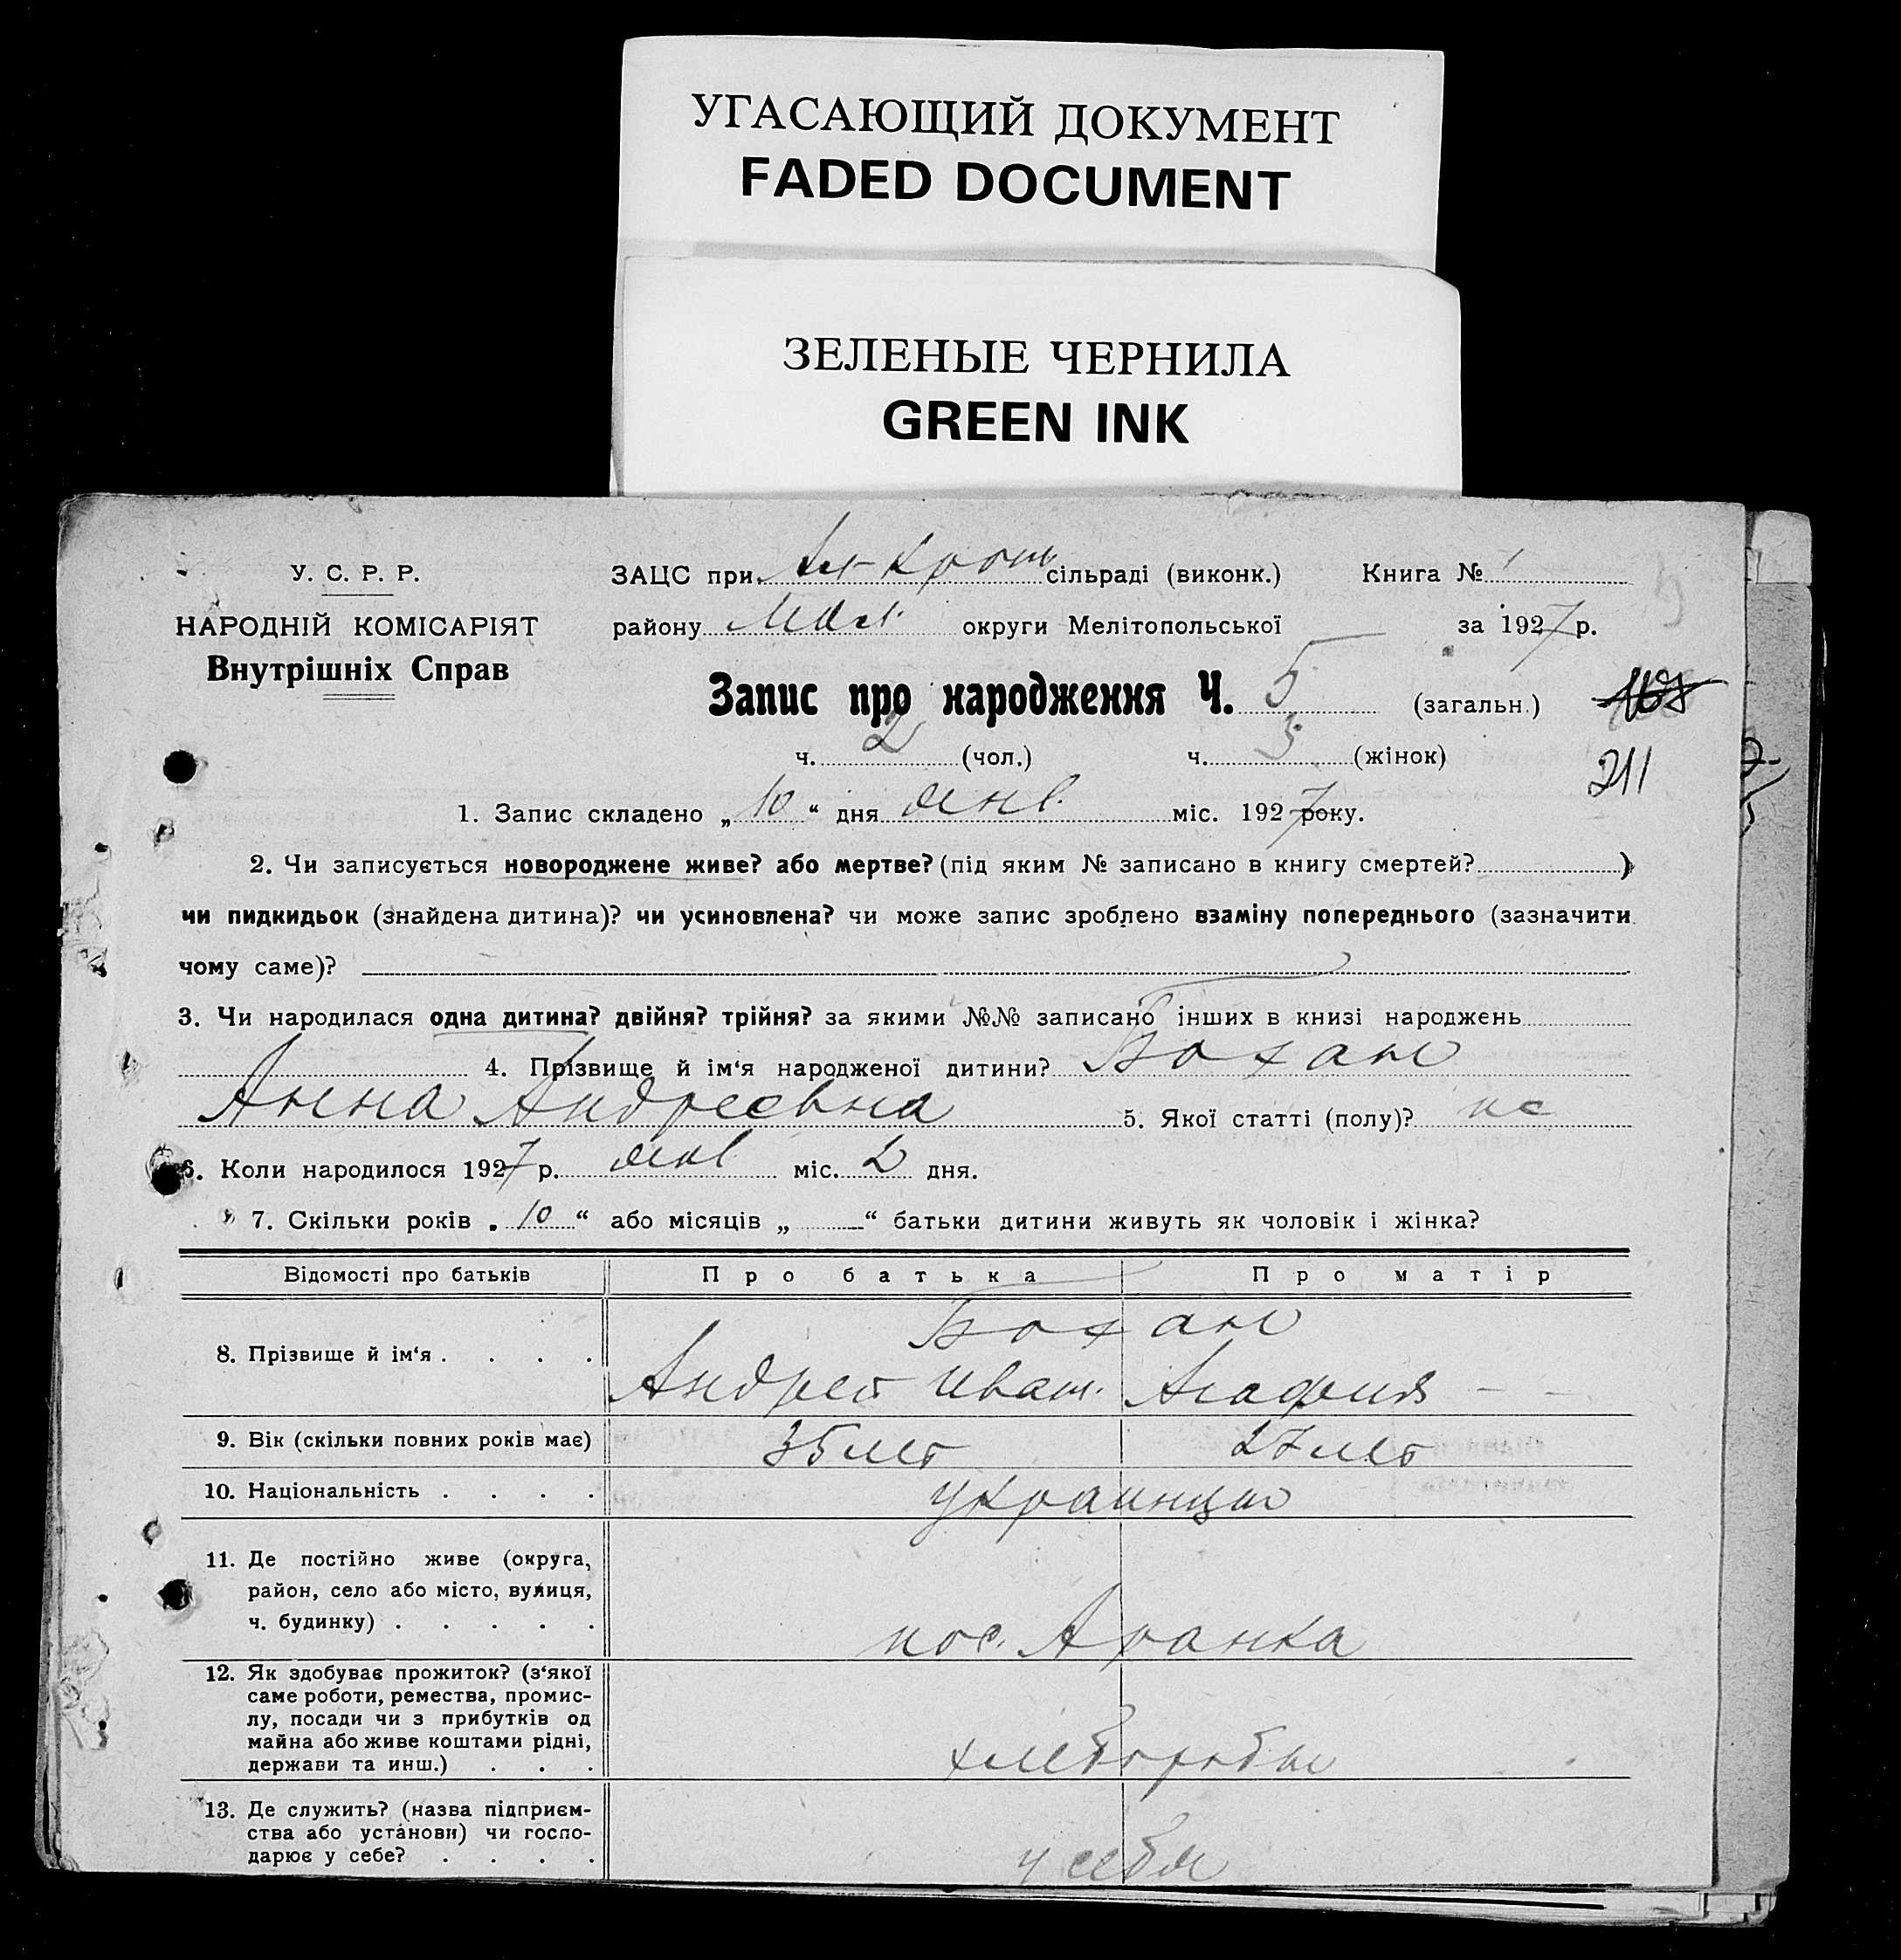 УГАСАЮЩИЙ ДОКУМЕНТ
FADED DOCUMENT
ЗЕЛЕНЫЕ ЧЕРНИЛА
GREEN INK
У. С. Р. Р.
НАРОДНІЙ КОМІСАРІЯТ
Внутрішніх Справ
ЗАЦС при сільраді (виконк.) Книга №
району округи Мелітопольської за 1927 р.
Запис про народження Ч. 5 (загальн.)
ч. 2 (чол.) ч. 3 (жінок)
211
1. Запис складено „ 10 “ дня янв. міс. 1927 року.
2. Чи записується новороджене живе? або мертве? (під яким № записано в книгу смертей? )
чи пидкидьок (знайдена дитина)? чи усиновлена? чи може запис зроблено взаміну попереднього (зазначити
чому саме)?
3. Чи народилася одна дитина? двійня? трійня? за якими №№ записано інших в книзі народжень
4. Прізвище й ім‘я народженої дитини? Бохан
Анна Андреевна 5. Якої статті (полу)? же
6. Коли народилося 1927 р. янв міс. 2 дня.
7. Скільки років „ 10 “ або місяців „ “ батьки дитини живуть як чоловік і жінка?
Відомості про батьків Про батька Про матір
Бохан
8. Прізвище й ім‘я . . . .
Андрей Иван. Агафия - -
9. Вік (скільки повних років має) 35 лет 27 лет
10. Національність . . . . украинцы
11. Де постійно живе (округа,
район, село або місто, вулиця,
ч. будинку) . . . . .
пос.
12. Як здобуває прожиток? (з‘якої
саме роботи, ремества, промис-
лу, посади чи з прибутків од
майна або живе коштами рідні,
держави та инш.) . . .
хлеборобы
13. Де служить? (назва підприєм-
ства або установи) чи госпо-
дарює у себе? . . . .
у себя